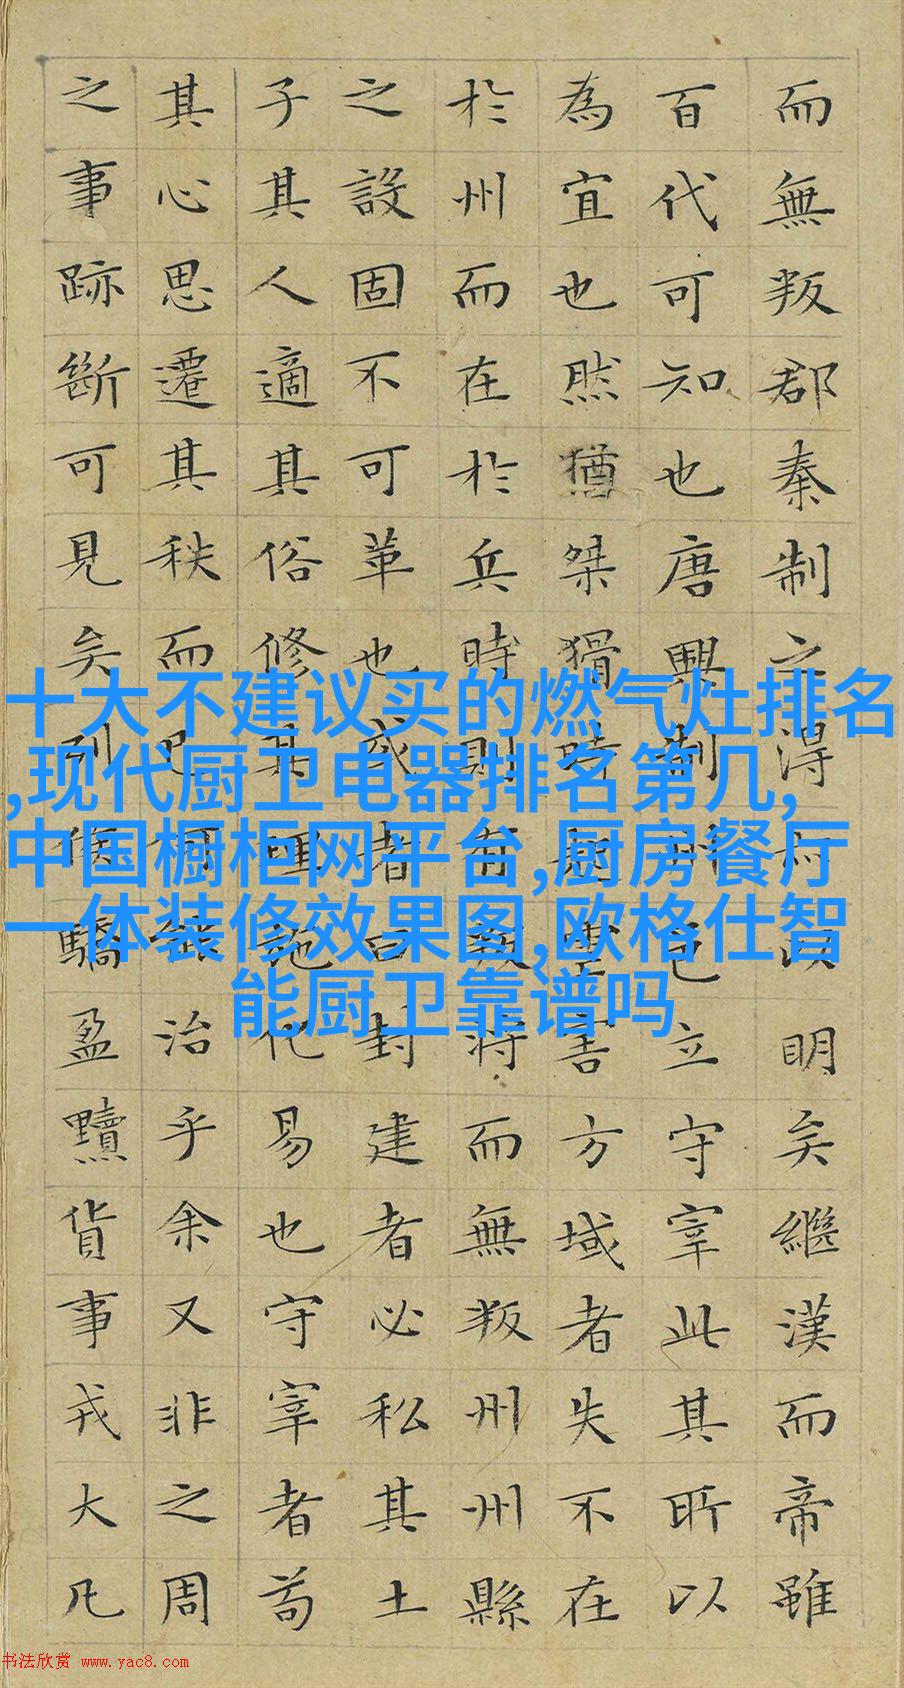 而無叛郡秦制之得以明矣繼漢而帝雖
百代可知也唐興制州邑立守宰此其所以
為宜也然猶桀猾時起虐害方域者失不在
於州而在於兵時則有叛將而無叛州州縣
之設固不可革也或者曰封建者必私其土
子其人適其俗修其理施化易也守宰者苟
其心思遷其秩而已何能治乎余又非之周
之事跡斷可見矣列侯驕盈黷貨事戎大凡
十大不建议买的燃气灶排名
,现代厨卫电器排名第几,
中国橱柜网平台,厨房餐厅
一体装修效果图,欧格仕智
能厨卫靠谱吗
书法欣赏 www.yac8.com